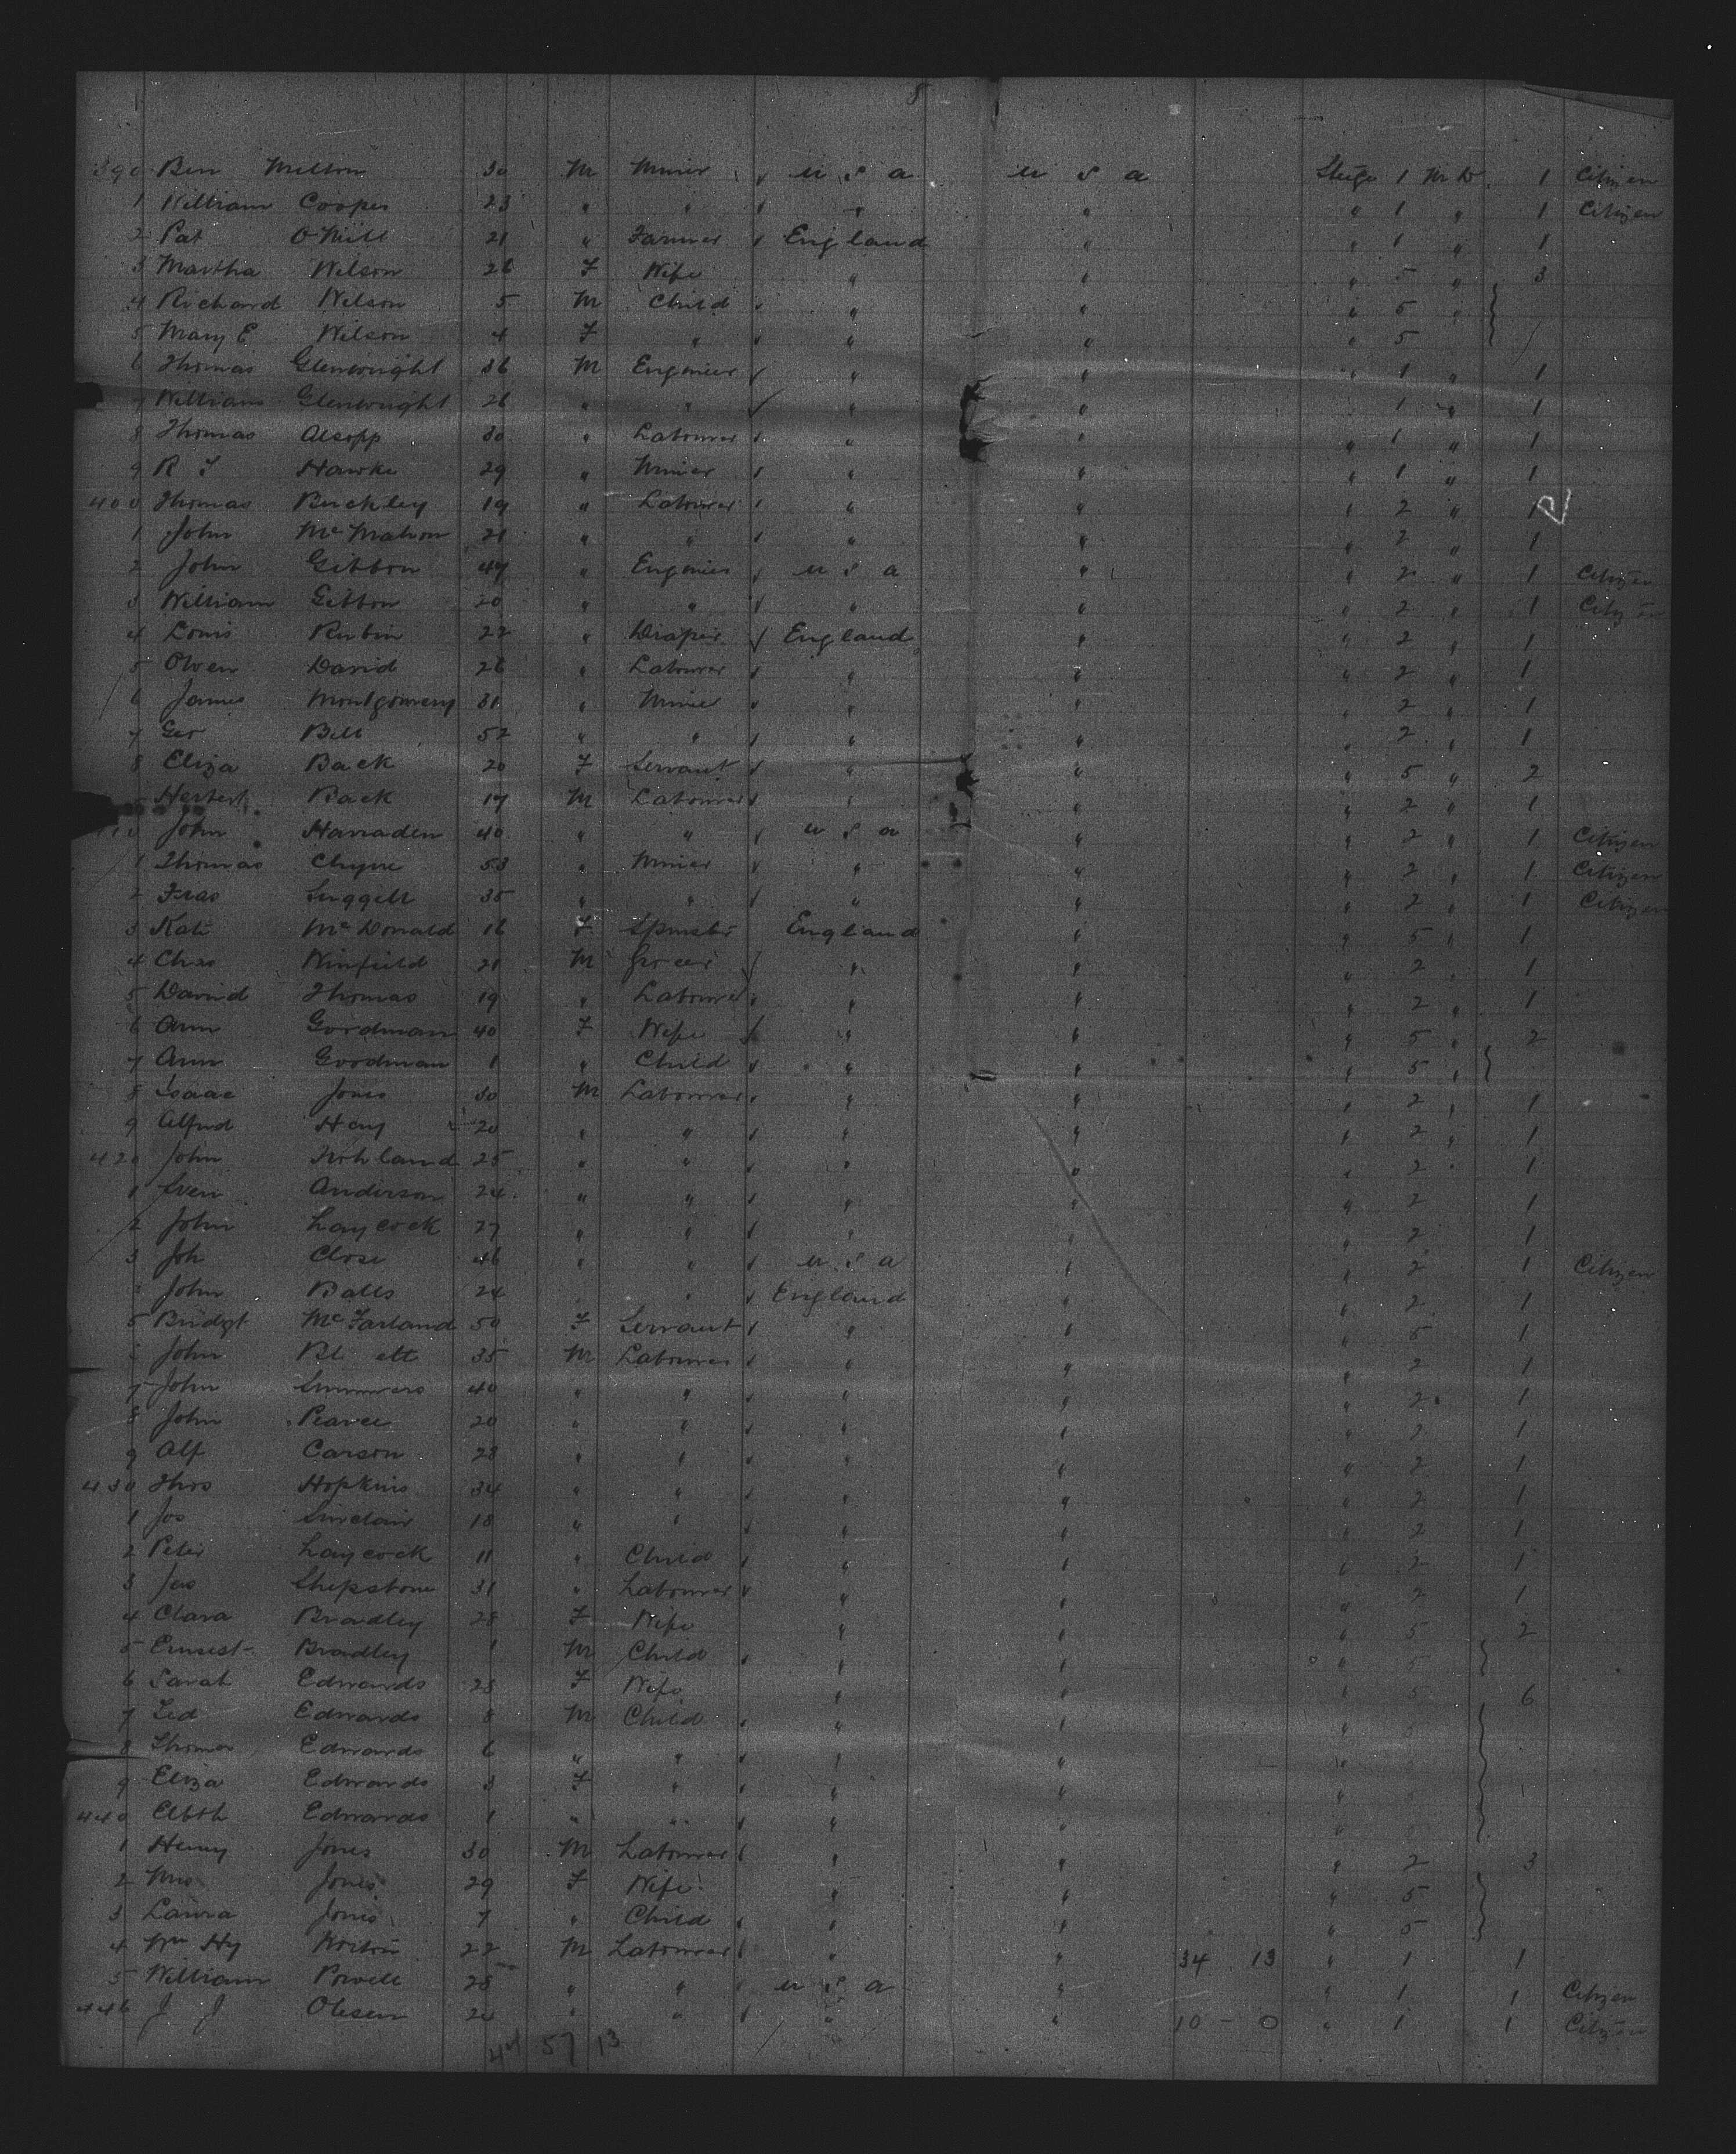 8
390 Ben Melton 30 M Miner u s a u s a Stege 1 1 Citizen
1 William Cooper 23 " " " " " 1 " 1 Citizen
2 Pat O Neill 21 " Farmer England " " 1 " 1
3 Martha Wilson 26 F Wife " " " 5 " 3
4 Richard Wilson 5 M Child " " " 5 "
5 Mary E Wilson 4 F " " " " 5
6 Thomas Glenwright 36 M Engineer " " " 1 " 1
7 William Glenwright 26 " " " " 1 " 1
8 Thomas Alsopp 30 " Labourer " " " 1 " 1
9 R Hawke 29 " Miner " " " 1 " 1
400 Thomas Buckley 19 " Labourer " " " 2 " 1
1 John Mc Mahon 21 " " " " " 2 " 1
2 John Gibbon 47 " Engineer u s a " " 2 " 1 Citizen
3 William Gibbon 20 " " " " " 2 " 1 Citizen
4 Louis Rubin 22 " Draper England " " 2 " 1
5 Owen David 26 " Labourer " " " 2 " 1
6 James Montgomery 31 " Miner " " " 2 " 1
7 Geo Bell 52 " " " " " 2 " 1
8 Eliza Back 20 F Servant " " " 5 " 2
Herbert Back 17 M Labourer " " " 2 " 1
410 John Harraden 40 " " u s a " " 2 " 1 Citizen
1 Thomas Chyne 53 " Miner " " " 2 " 1 Citizen
2 Fras Suggett 35 " " " " " 2 " 1 Citizen
3 Kate Mc Donald 16 F Spinster England " " 5 " 1
4 Chas Winfield 21 M Grocer " " " 2 " 1
5 David Thomas 19 " Labourer " " " 2 " 1
6 Ann Goodman 40 F Wife " " " 5 " 2
7 Ann Goodman 1 " Child " " " 5 "
8 Isaac Jones 30 M Labourer " " " 2 " 1
9 Alfred Hay 20 " " " " " 2 " 1
420 John 25 " " " " " 2 " 1
1 Sven Anderson 24 " " " " " 2 1
2 John Laycock 27 " " " " " 2 1
3 Joh Close 46 " " u s a " " 2 1 Citizen
John Balls 24 " England " " 2 1
5 Bridgt Mc Farland 50 F Servant " " " 5 1
John 35 M Labourer " " " 2 1
7 John Summers 40 " " " " " 2 1
8 John Pearce 20 " " " " " 2 1
9 Alf Carson 28 " " " " " 2 1
430 Thos Hopkins 34 " " " " " 2 1
1 Jos Sinclair 18 " " " " " 2 1
2 Peter Laycock 11 " Child " " " 2 1
3 Jas Shepstone 31 " Labourer " " " 2 1
4 Clara Bradley 28 F Wife " " " 5 2
5 Ernest Bradley 1 M Child " " " 5
6 Sarah Edwards 28 F Wife " " " 5 6
7 Edwards 8 M Child " " "
8 Thomas Edwards 6 " " " " "
9 Eliza Edwards 3 F " " " "
440 Elbth Edwards 1 " " " " "
1 Henry Jones 30 M Labourer " " " 2 3
2 Mrs Jones 29 F Wife " " " 5
3 Laura Jones 7 " Child " " " 5
4 Wm Hy 22 M Labourer " " 34 13 " 1 1
5 William Powell 28 " " u s a " " 1 1 Citizen
446 J J Olesen 24 " " " " 10 - 0 " 1 1 Citizen
57 13